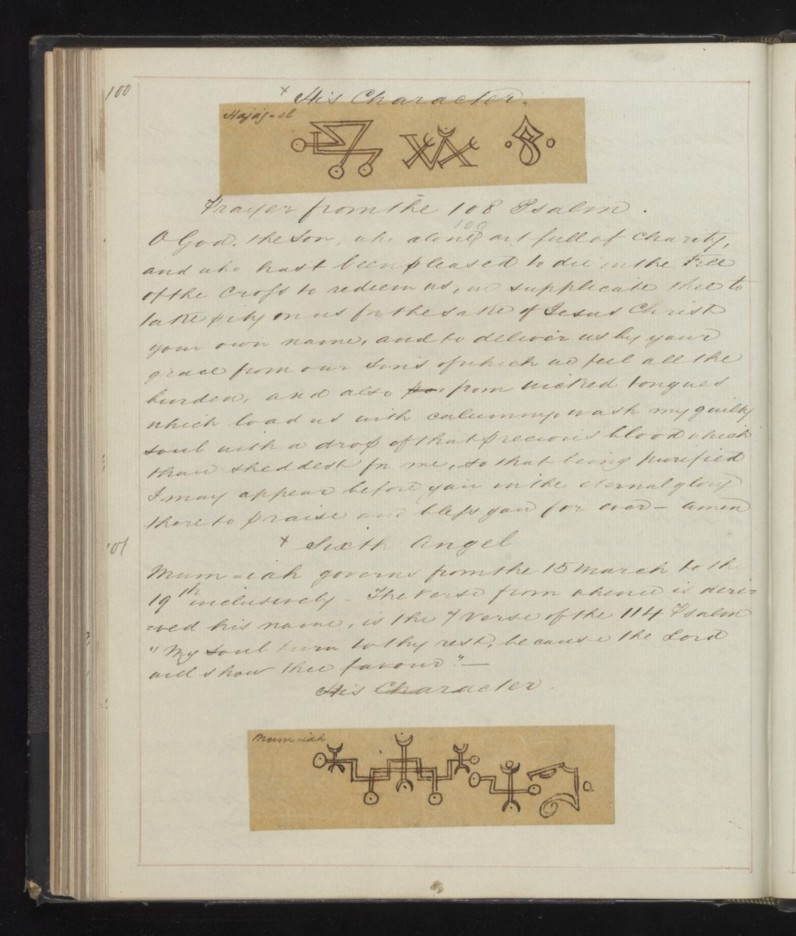 100
x His Character.
Hajaj-el
Prayer from the 108 Psalm.
100
O God, the Son, who alone art full of Charity,
and who hast been pleased to die on the Tree
of the Cross to redeem us, we supplicate thee to
take pity on us for the sake of Jesus Christ
your own name, and to deliver us by your
grace from our Sins of which we feel all the
burden, and also from wicked tongues
which load us with calumny, wash my guilty
soul with a drop of that precious blood which
thou sheddest for me, so that being purified
I may appear before you in the eternal glory
there to praise and bless you for ever - Amen
101
x Sixth Angel
Mum-iah governs from the 15 March to the
19th inclusively - The Verse from whence is deri=
=ved his name, is the 7 Verse of the 114 Psalm
"My Soul turn to thy rest, because the Lord
will show thee favour" -
His Character
Mum-iah